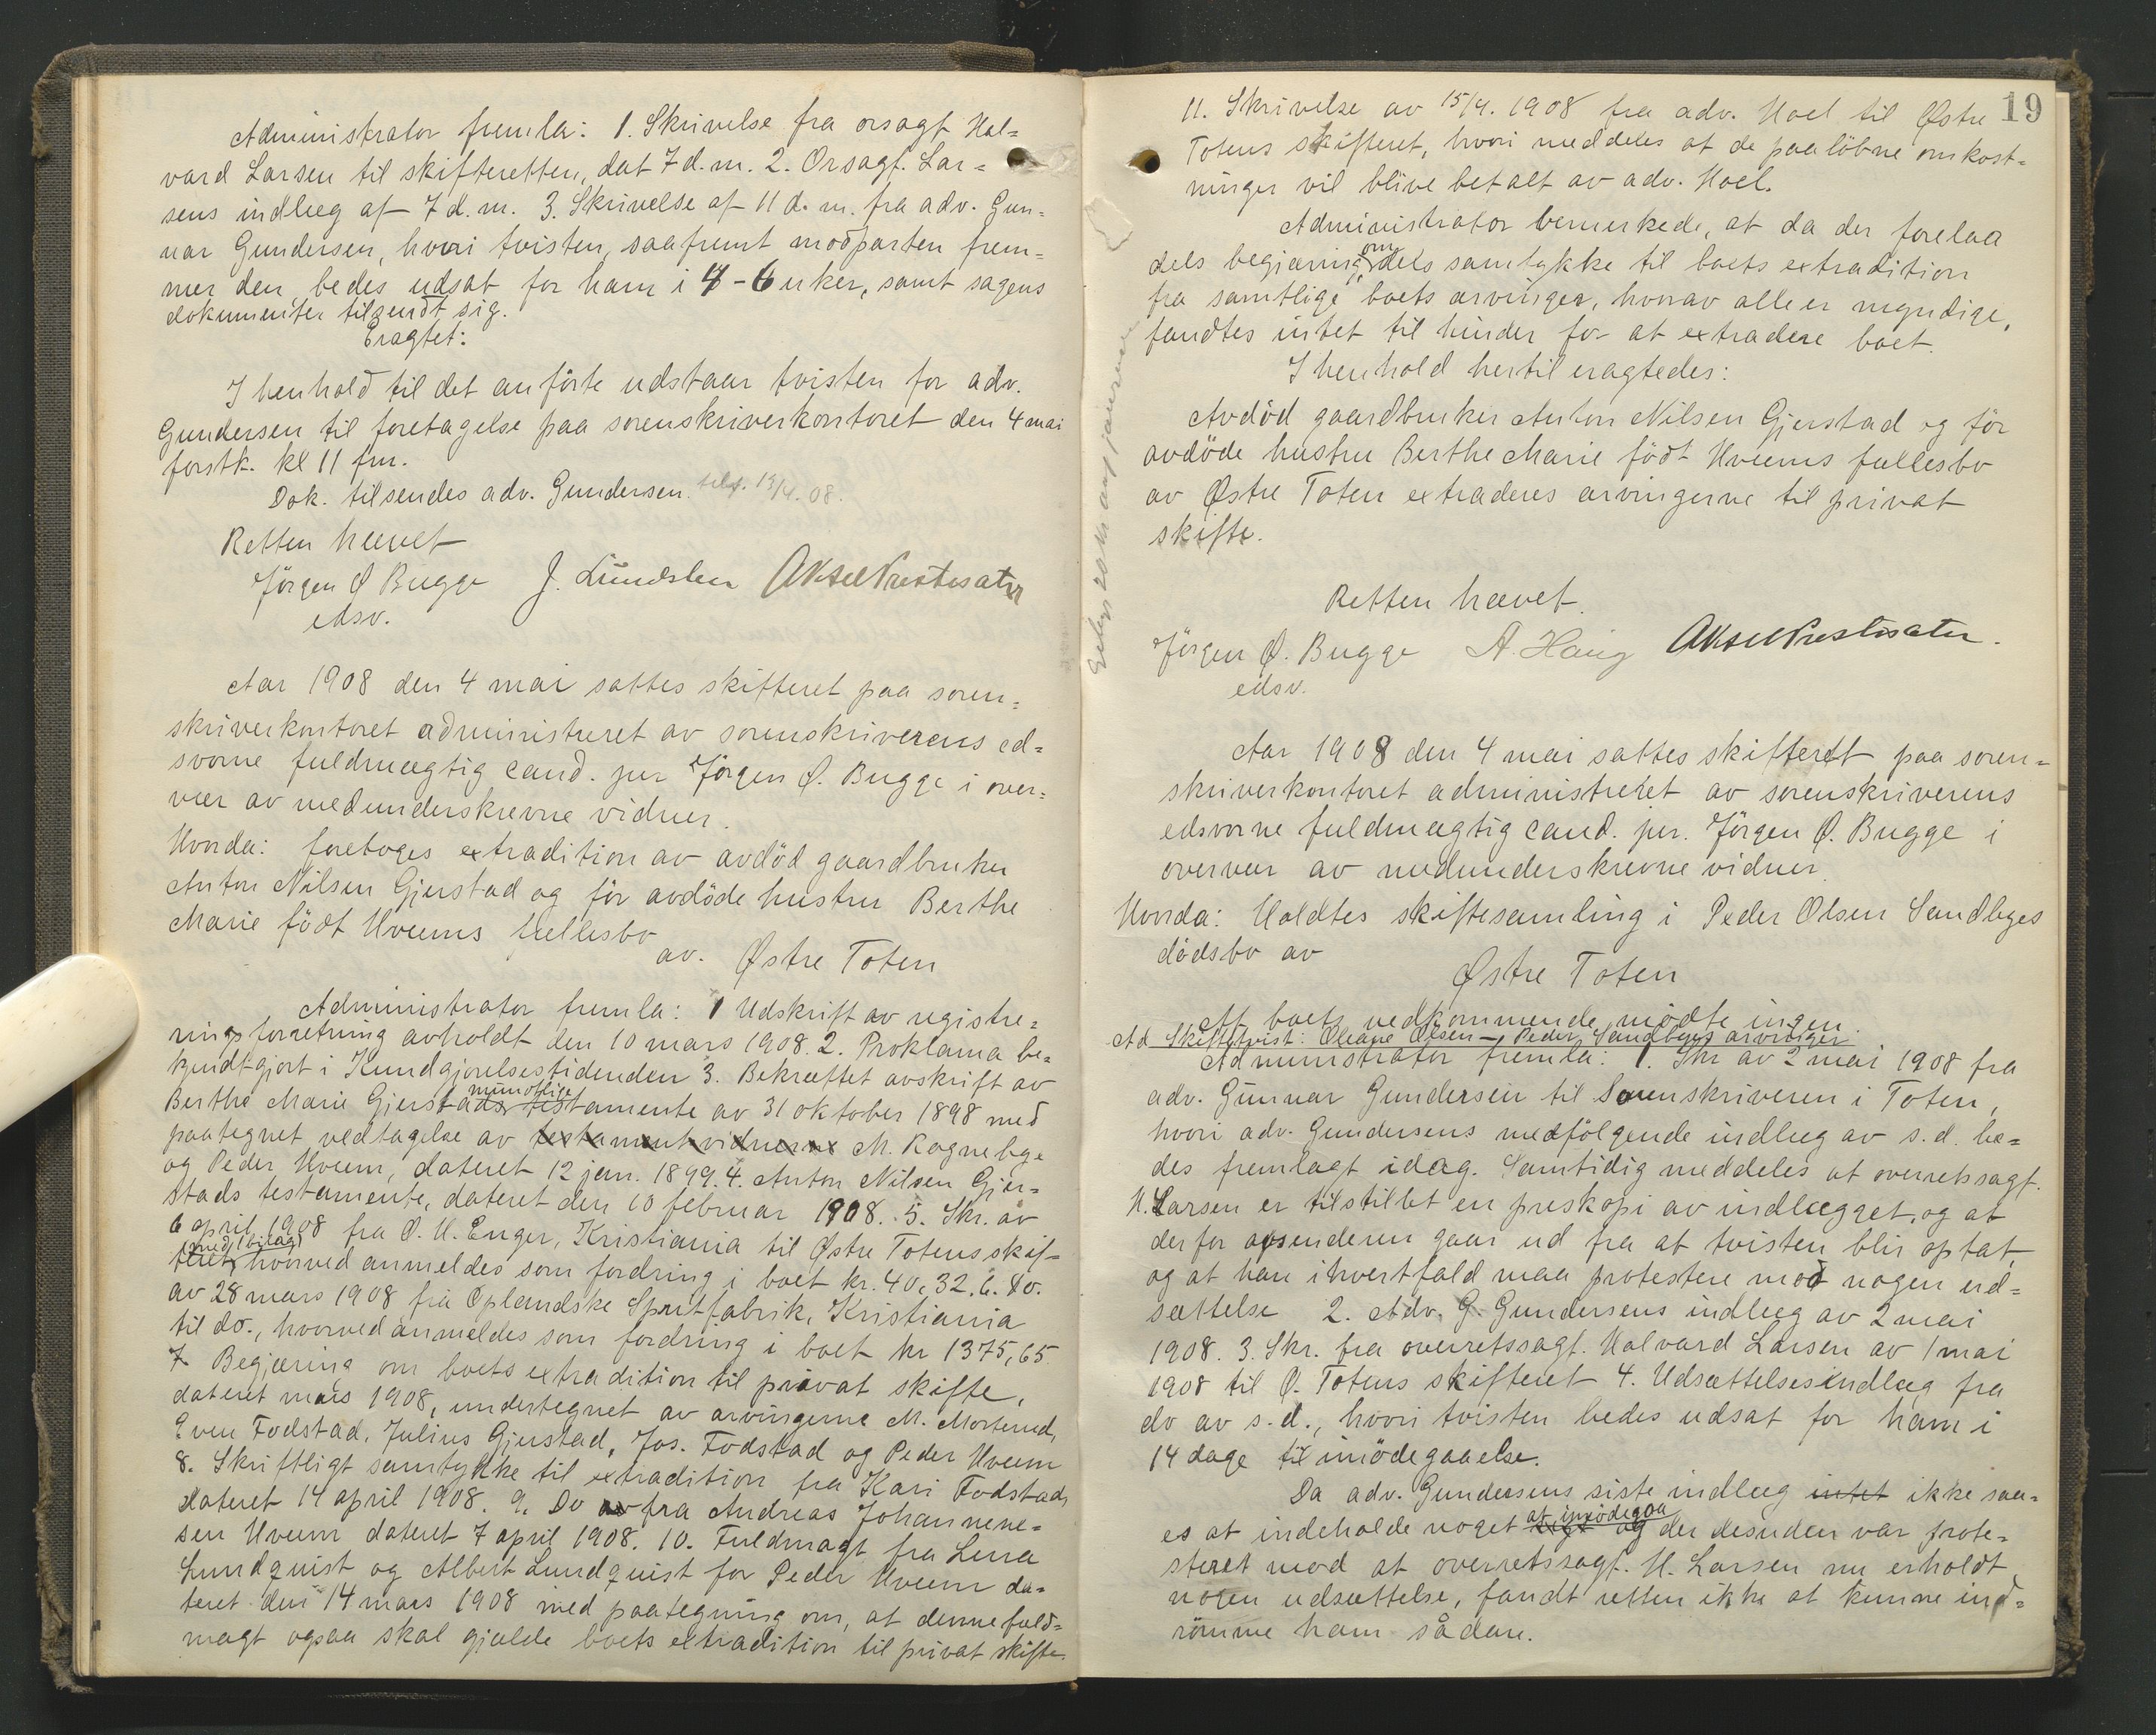 Administrator fremla: 1. Skrivelse fra orsagf. Hal=
vard Larsen til skifteretten, dat 7 d. m. 2. Orsagf. Lar=
sens indlæg af 7 d. m. 3. Skrivelse af 11 d. m. fra adv. Gun=
nar Gundersen, hvori tvisten, saafremt modparten frem=
mer den, bedes udsat for ham i 4-6 uker, samt sagens
dokumenter tilsendt sig.
Eragtet:
I henhold til det anførte udstaar tvisten for adv.
Gundersen til foretagelse paa sorenskriverkontoret den 4 mai
førstk. kl 11 fm.
Dok. tilsendes adv. Gundersen. 13/4. 08.
Retten hævet
Jörgen Ø Bugge J. Lundsten Aksel Prestesater
edsv.
Aar 1908 den 4 mai sattes skifteret paa soren=
skriverkontoret administreret av sorenskriverens ed=
svorne fuldmægtig cand. jur Jörgen Ø. Bugge i over=
vær av medunderskrevne vidner.
Hvorda: foretoges extradition av avdöd gaardbruker
Anton Nilsen Gjerstad og för avdöde hustru Berthe
Marie födt Hveems fællesbo
av. Østre Toten
Administrator fremla: 1 Udskrift av registre=
ringsforretning avholdt den 10 mars 1908. 2. Proklama be=
kjendtgjort i Kundgjørelsestidenden 3. Bekræftet avskrift av
Berthe Marie Gjerstads mundtlige testamente av 31 oktober 1898 med
paategnet vedtagelse av testamentvidnerne M. Rognebye
og Peder Hveem, dateret 12 jan. 1899. 4. Anton Nilsen Gjer=
stads testamente, dateret den 10 februar 1908. 5. Skr. av
6 april 1908 fra O. H. Enger, Kristiania til Østre Totens skif=
teret (med 1 bilag), hvorved anmeldes som fordring i boet kr. 40,32. 6. Do.
av 28 mars 1908 fra Oplandske Spritfabrik, Kristiania
til do., hvorved anmeldes som fordring i boet kr 1375,65
7. Begjæring om boets extradition til privat skifte,
dateret mars 1908, undertegnet av arvingerne M. Morterud,
Even Fodstad, Julius Gjerstad, Jos. Fodstad og Peder Hveem
8. Skriftligt samtykke til extradition fra Kari Fodstad,
dateret 14 april 1908. 9. Do av fra Andreas Johannene=
sen Hveem dateret 7 april 1908. 10. Fuldmagt fra Lena
Lundquist og Albert Lundquist for Peder Hveem da=
teret den 14 mars 1908 med paategning om, at denne fuld=
magt ogsaa skal gjælde boets extradition til privat skifte.
19
11. Skrivelse av 15/4. 1908 fra adv. Hoel til Østre
Totens skifteret, hvori meddeles at de paaløbne omkost=
ninger vil blive betalt av adv. Hoel.
Administrator bemerkede, at da der forelaa
dels begjæring om dels samtykke til boets extradition
fra samtlige boets arvinger, hvorav alle er myndige,
fandtes intet til hinder for at extradere boet.
I henhold hertil eragtedes:
Avdöd gaardbruker Anton Nilsen Gjerstad og för
avdöde hustru Berthe Marie födt Hveems fællesbo
av Østre Toten extraderes arvingerne til privat
skifte.
Retten hævet.
Jörgen Ø. Bugge A. Haug Aksel Prestesater.
edsv.
Aar 1908 den 4 mai sattes skifteret paa soren=
skriverkontoret administreret av sorenskriverens
edsvorne fuldmægtig cand. jur. Jörgen Ø. Bugge i
overvær av medunderskrevne vidner.
Hvorda: Holdtes skiftesamling i Peder Olsen Sandbyes
dödsbo av
Østre Toten
Af boets vedkommende mödte ingen.
Ad Skiftetvist: Oleane Olsen – Peder Sandbyes arvinger
Administrator fremla: 1. Skr av 2 mai 1908 fra
adv. Gunnar Gundersen til Sorenskriveren i Toten,
hvori adv. Gundersens medfölgende indlæg av s. d. be=
des fremlagt idag. Samtidig meddeles at overretssagf.
H. Larsen er tilstillet en preskopi av indlægget, og at
derfor avsenderen gaar ud fra at tvisten blir optat,
og at han ihvertfald maa protestere mod nogen ud=
sættelse 2. Adv. G. Gundersens indlæg av 2 mai
1908. 3. Skr. fra overretssagf. Halvard Larsen av 1 mai
1908 til Ø. Totens skifteret 4. Udsættelsesindlæg fra
do av s. d., hvori tvisten bedes udsat for ham i
14 dage til imödegaaelse.
Da adv. Gundersens siste indlæg intet ikke saa=
es at indeholde noget at imødegaa og der desuden var prote=
steret mod at overretssagf. H. Larsen nu erholdt
nogen udsættelse, fandt retten ikke at kunne ind=
römme ham sådan.